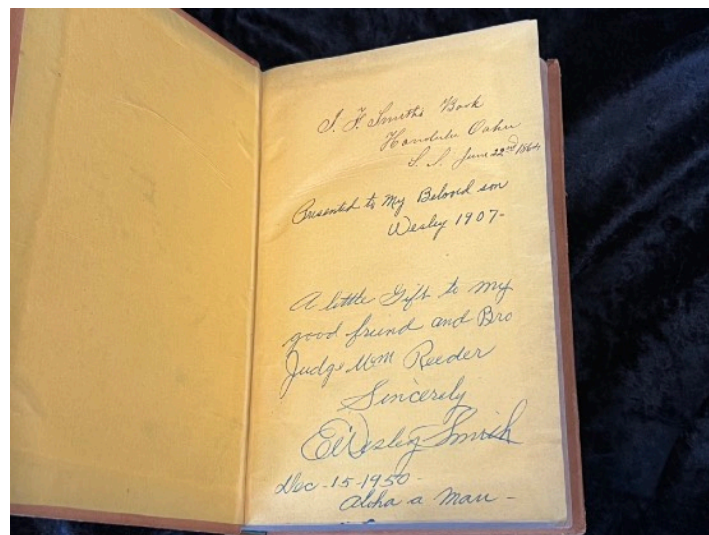 J. F. Smith's Book
Honolulu Oahu
S. I. June 22nd 1864
Presented to My Beloved son
Wesley 1907-
A little Gift to my
good friend and Bro
Judge Wm Reeder
Sincerely
E Wesley Smith
Dec-15-1950-
aloha a mau-